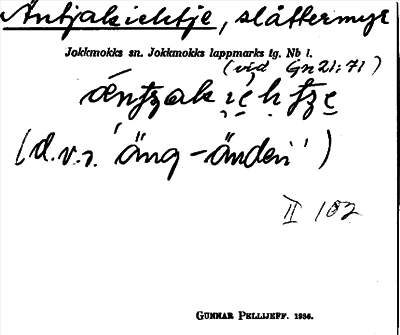 Antjakiehtje, slåttermyr
Jokkmokks sn. Jokkmokks lappmarks tg. Nb l.
(vid Gn 21:71)
ántʒak ịẹhtʒe
(d.v.s. "äng-änden")
II 102
GUNNAR PELLIJEFF. 1956.